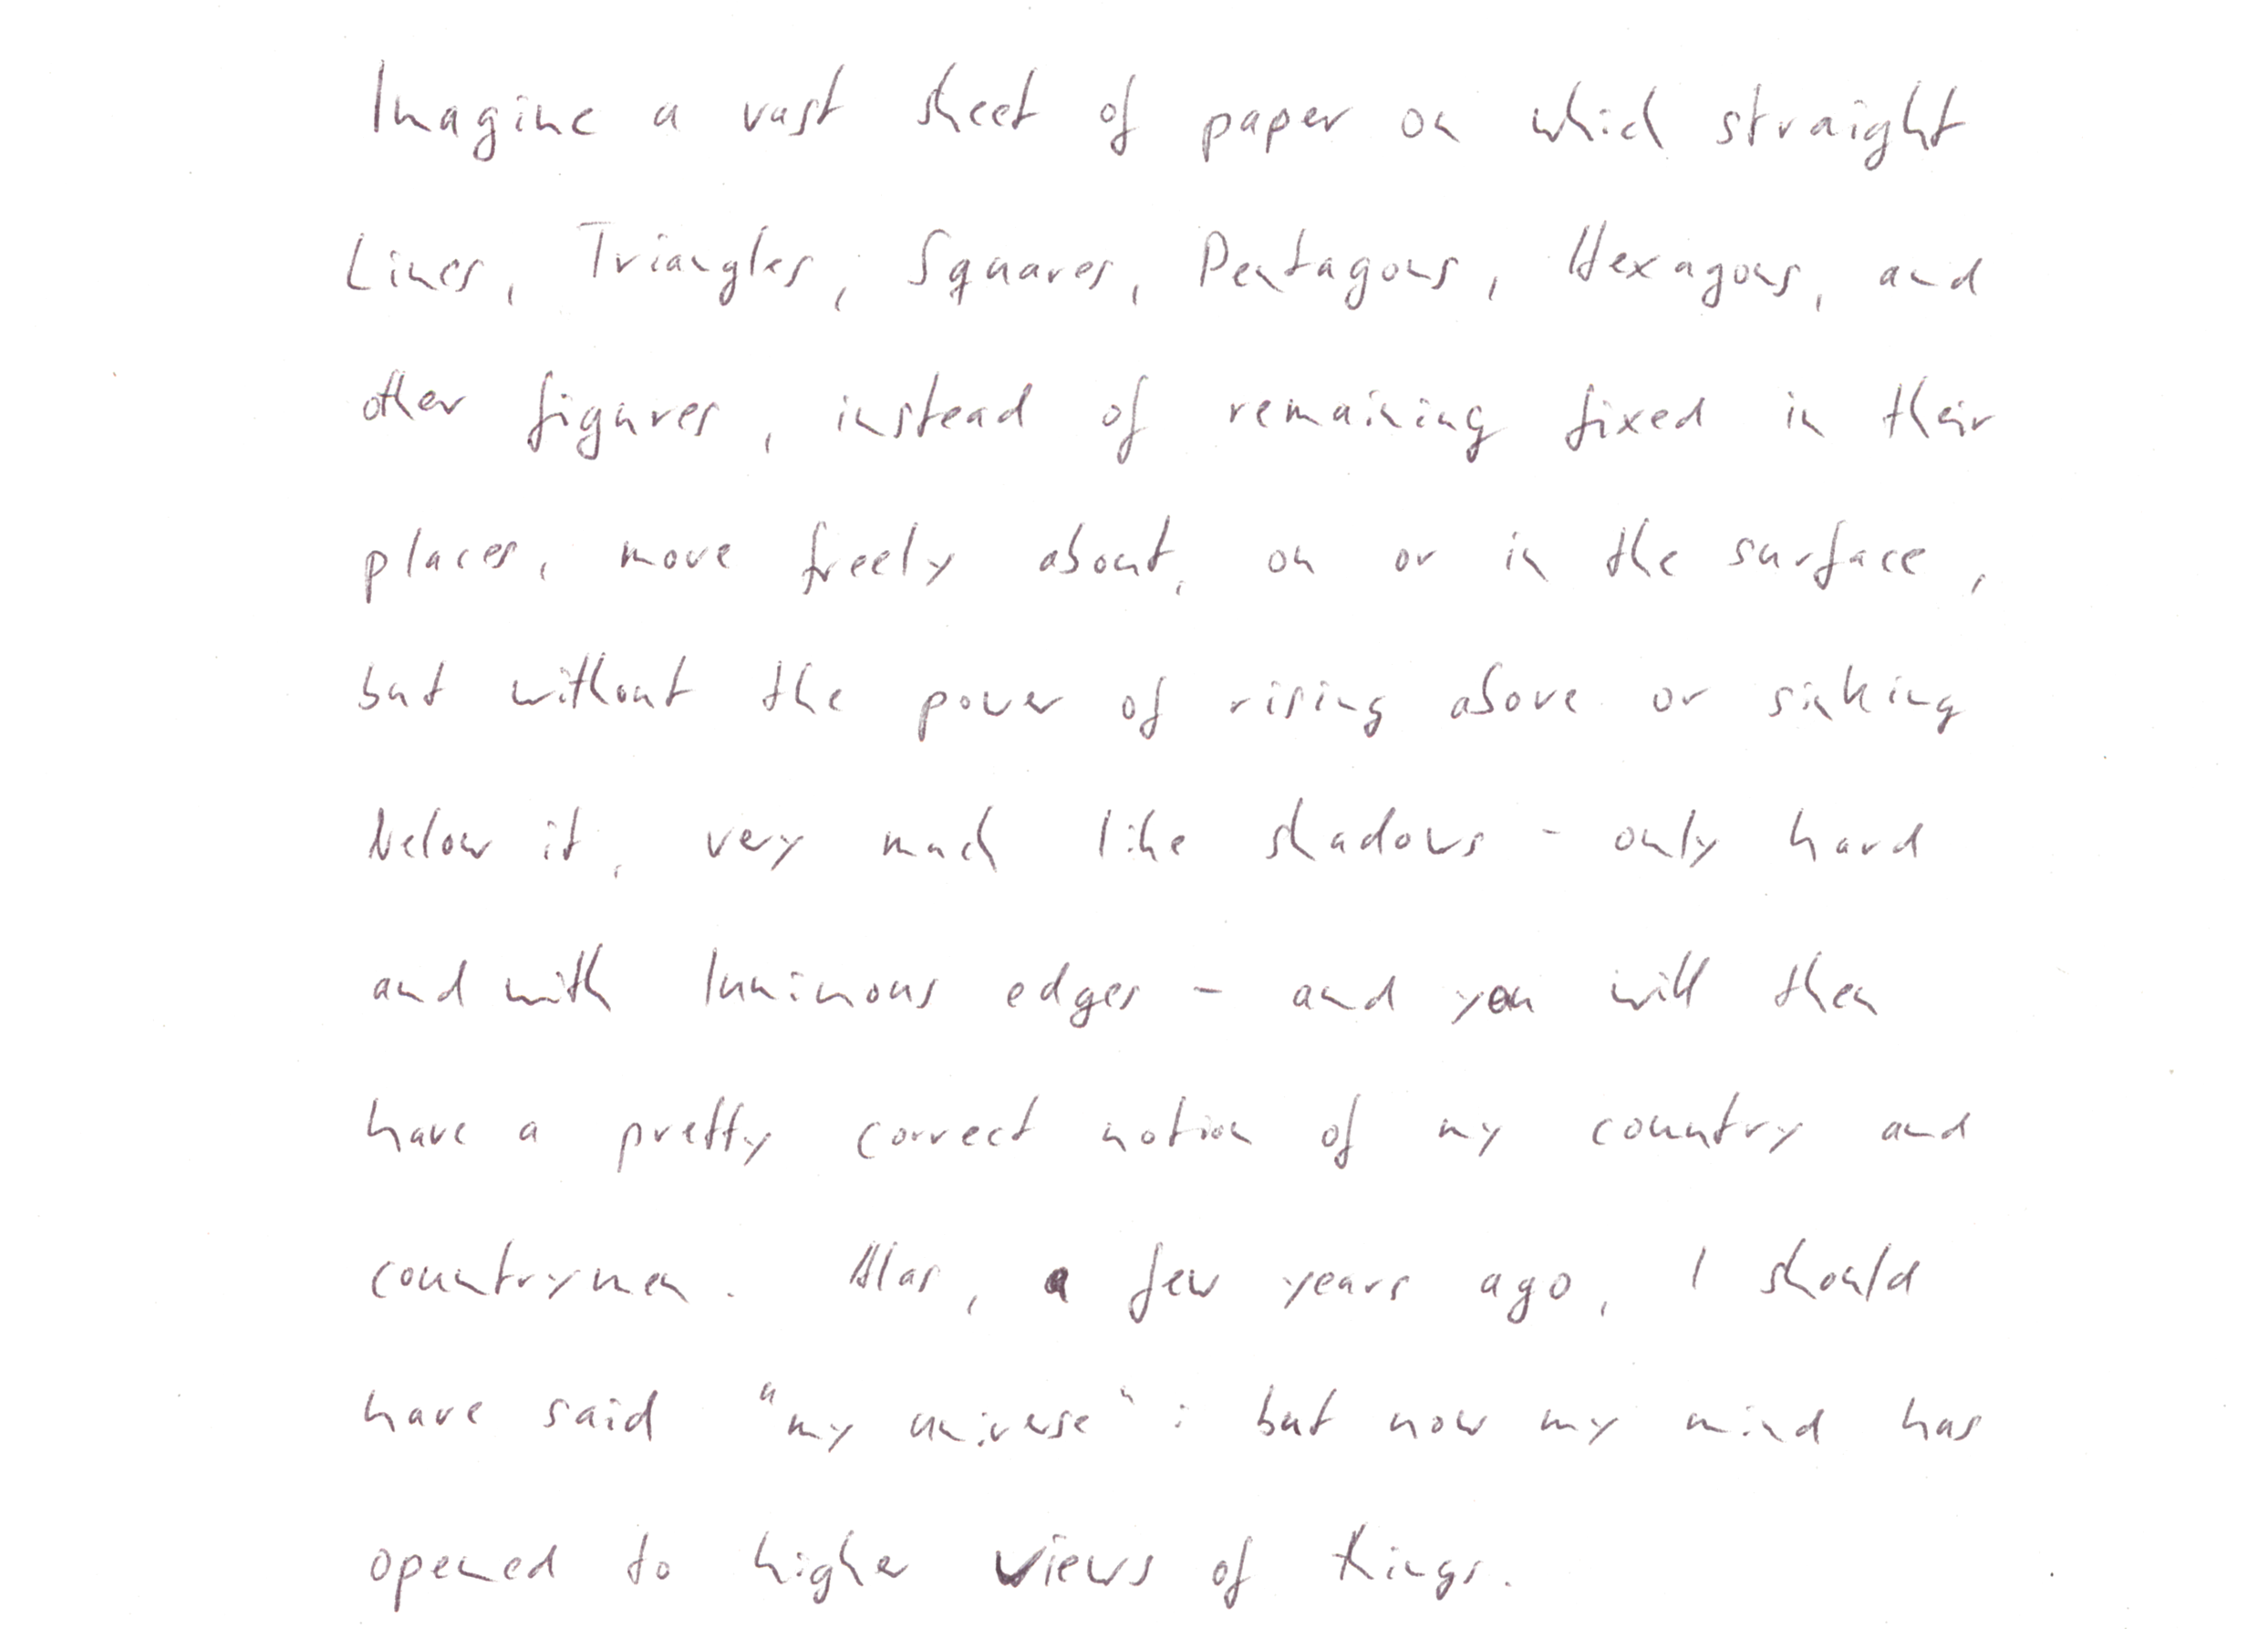 Imagine a vast sheet of paper on which straight
Lines, Triangles, Squares, Pentagons, Hexagons, and
other figures, instead of remaining fixed in their
places, move freely about, on or in the surface,
but without the power of rising above or sinking
below it, very much like shadows - only hard
and with luminous edges - and you will then
have a pretty correct notion of my country and
countrymen. Alas, a few years ago, I should
have said "my universe": but now my mind has
opened to higher views of things.